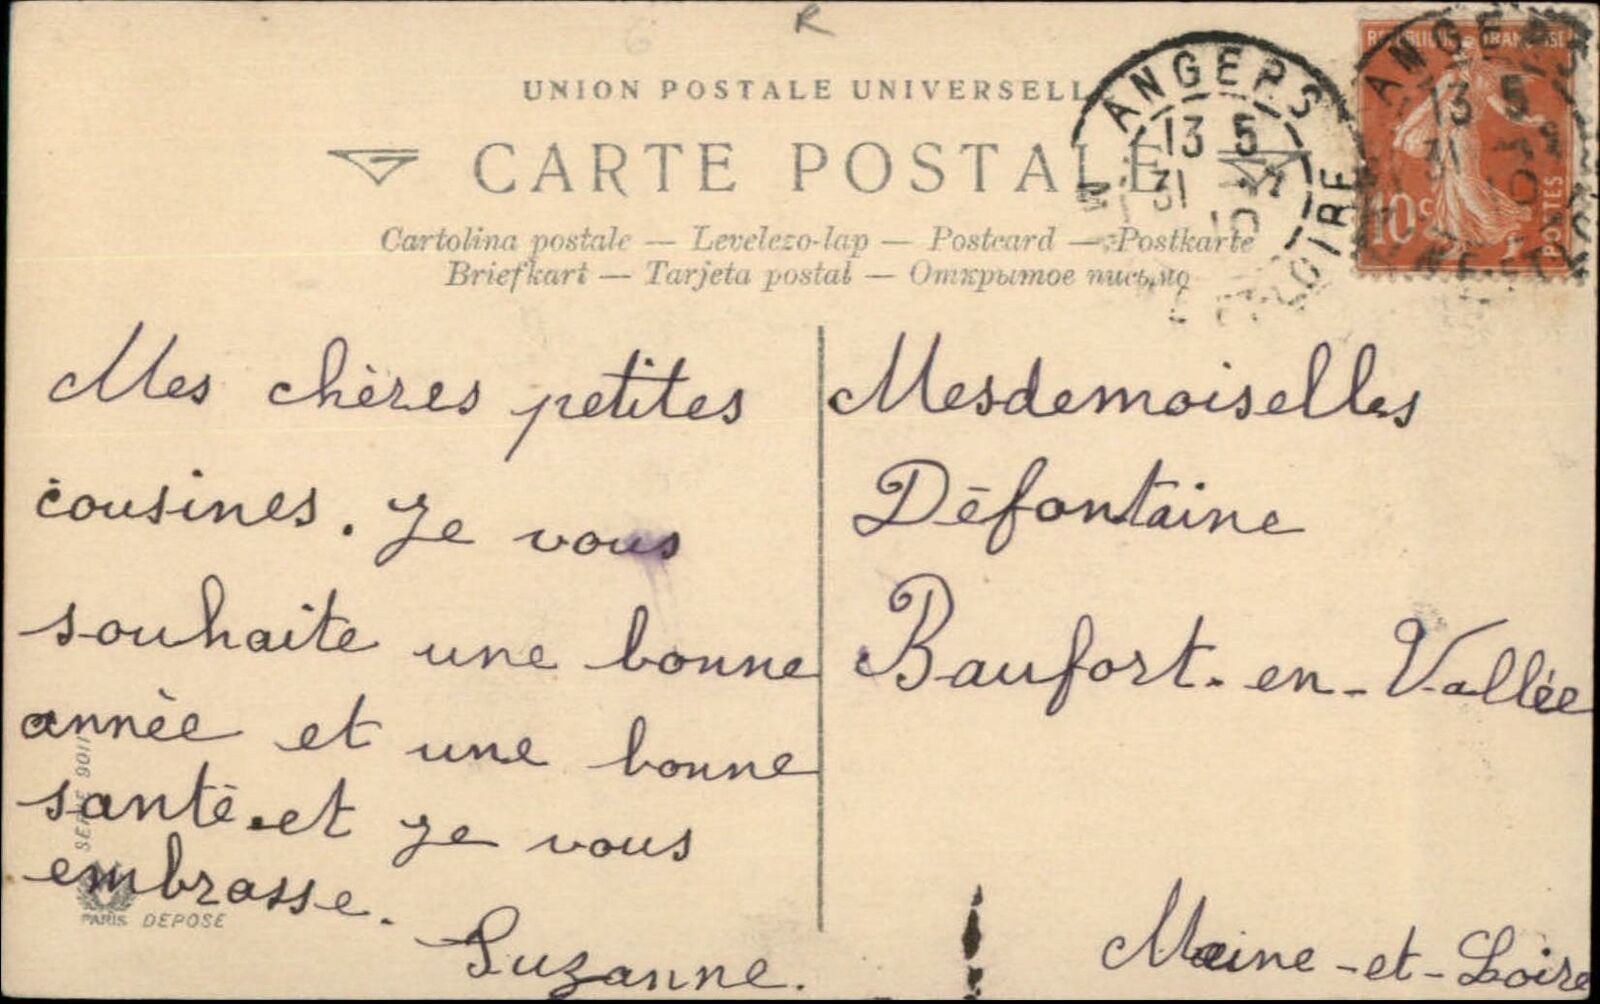 R
UNION POSTALE UNIVERSELLE
CARTE POSTALE
Cartolina postale — Levelezo-lap — Postcard — Postkarte
Briefkart — Tarjeta postal — Открытое письмо
ANGERS
13 5
31
10
LOIRE
REPUBLIQUE FRANÇAISE
ANGERS
13 5
31
10
10c
POSTES
Mes chères petites
cousines. Je vous
souhaite une bonne
année et une bonne
santé. et je vous
embrasse.
Suzanne.
Mesdemoiselles
Défontaine
Baufort-en-Vallée
Maine-et-Loire
SERIE 9011
PARIS DEPOSE